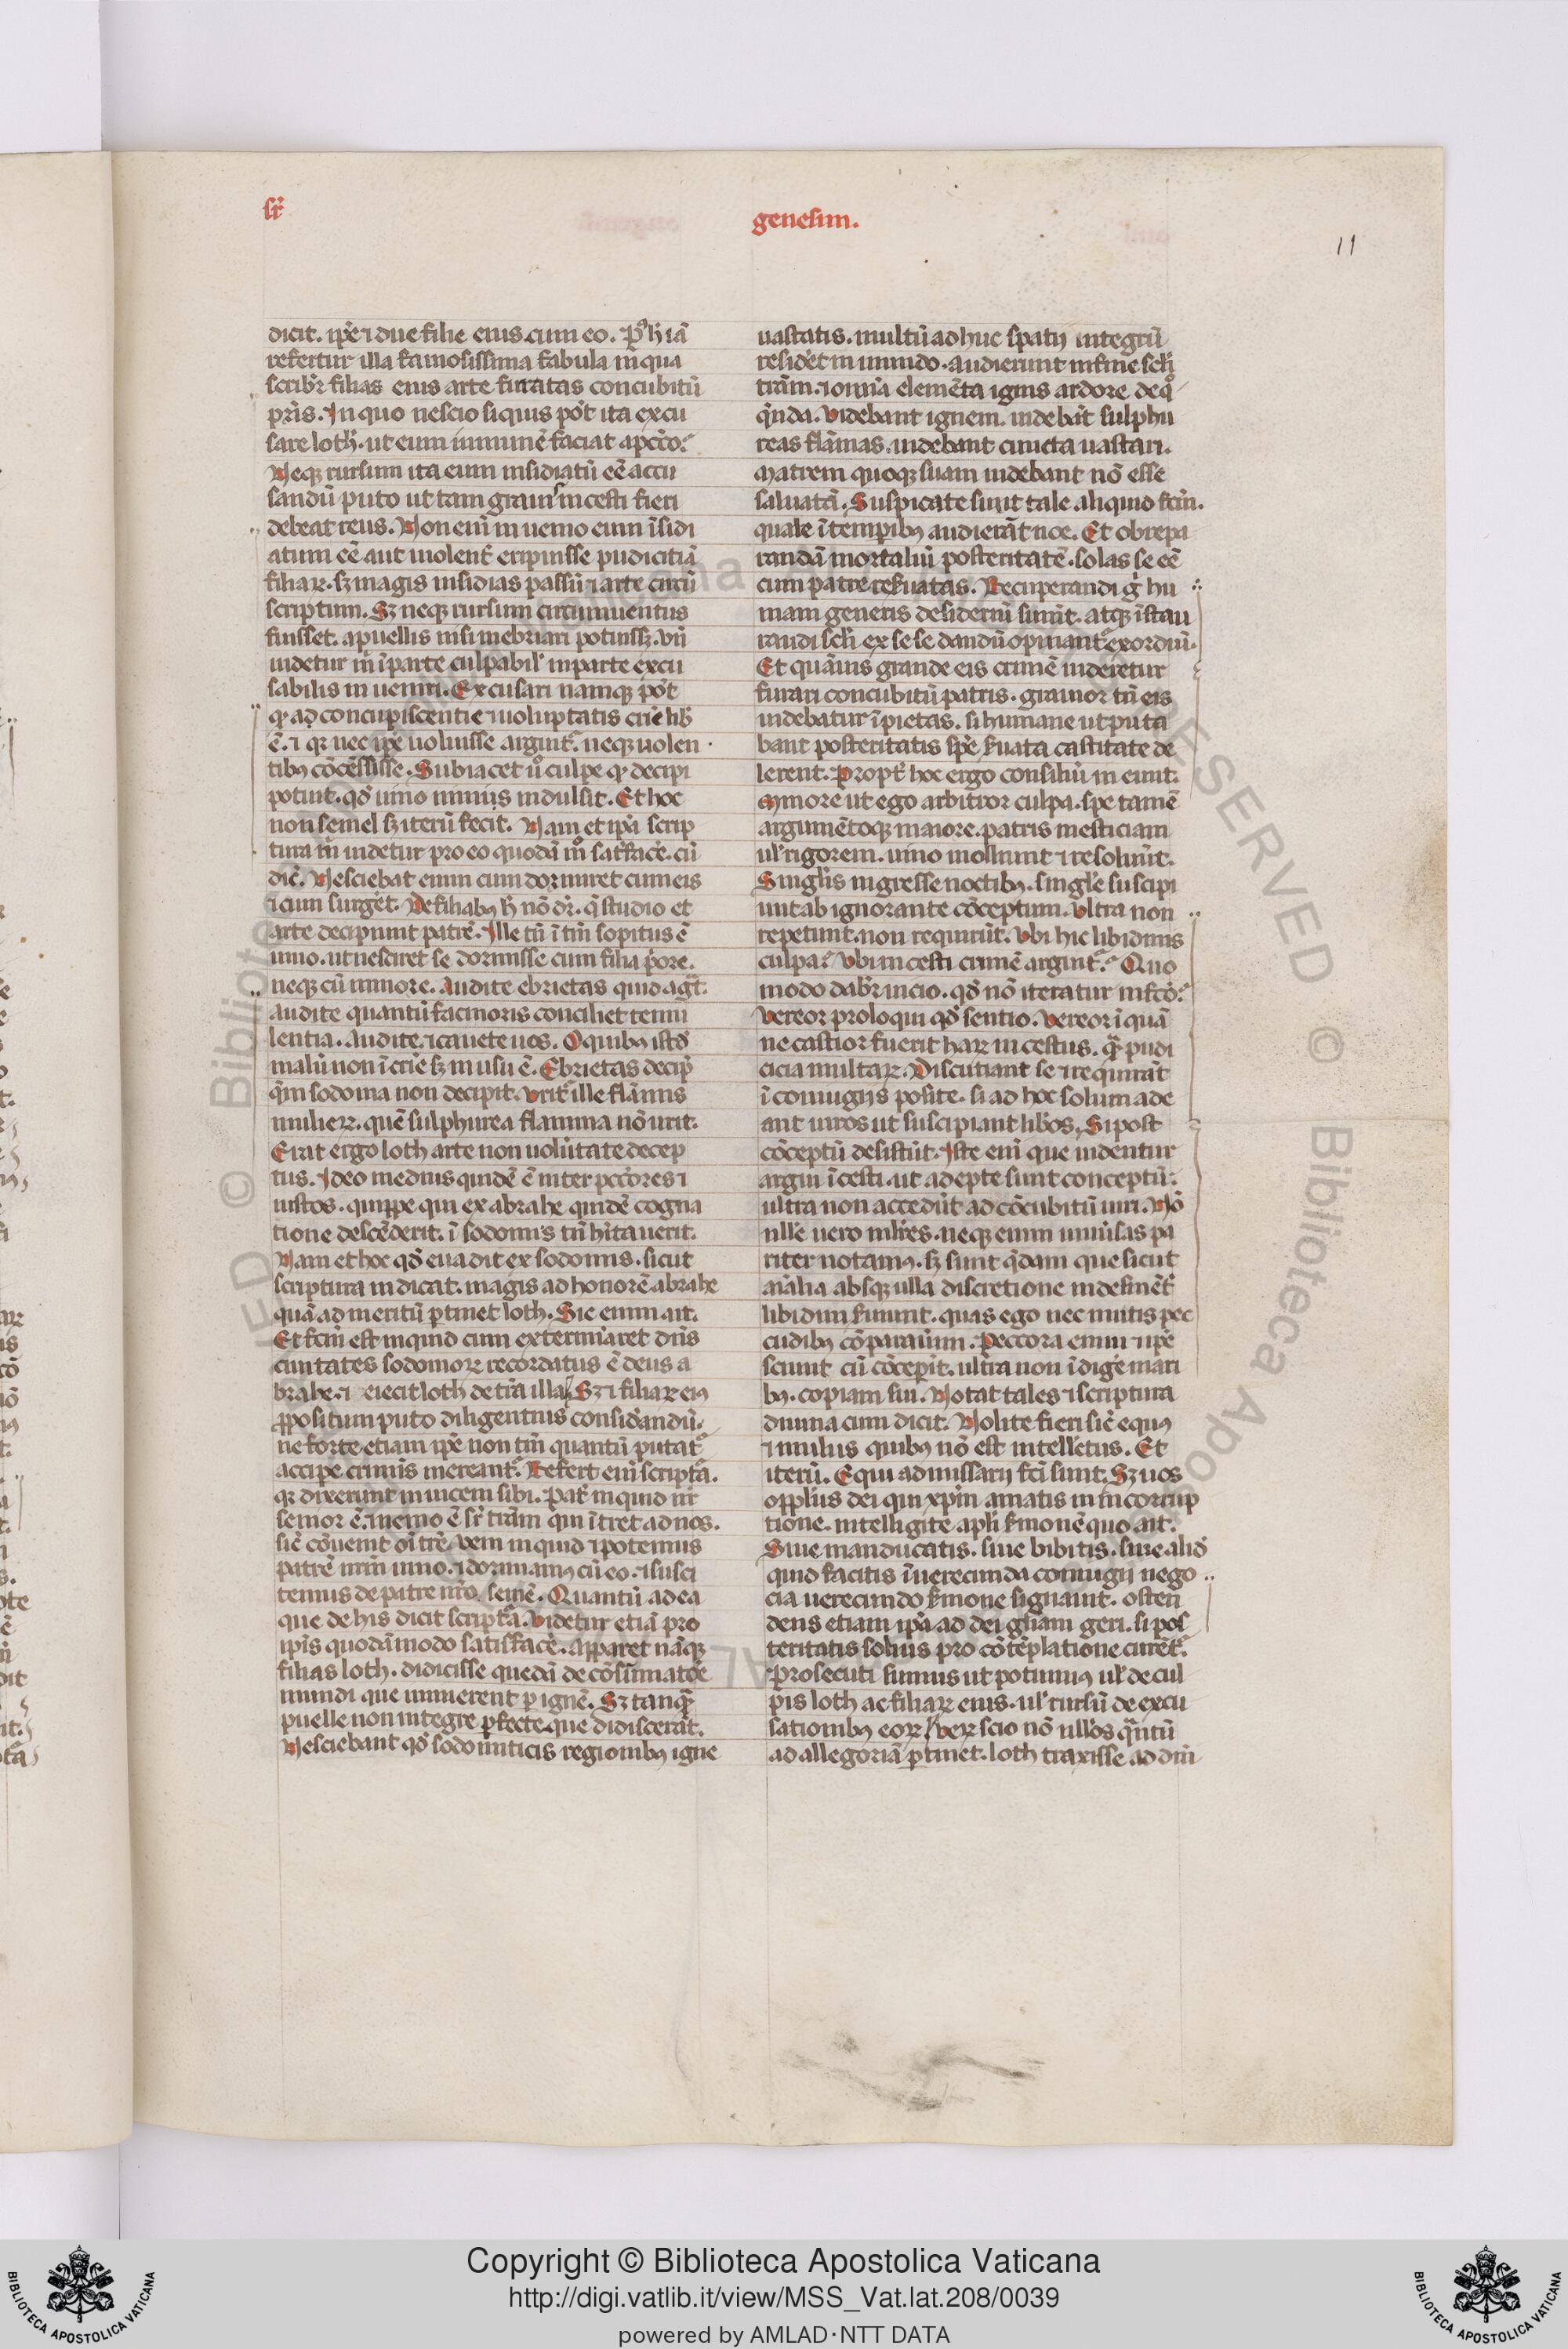 sr̄
genesim.
11
dicit. ip̄e ⁊ due filie eius cum eo. P⁹ h̄ iā
refertur illa famosissima fabula in qua
scribr̄ filias eius arte furatas concubitū
pr̄is. In quo nescio si quis pōt ita excu
sare loth. ut eum inmunē faciat a pctō.
Neq; rursum ita eum insidiatū eē accu
sandū puto ut tam grauis incesti fieri
debeat reus. Non eni in uenio eum īsidi
atum eē aut uiolent̄ eripuisse pudicitiā
filiaꝝ. sꝫ magis insidias passū ⁊ arte circū
scriptum. Sꝫ neq; rursum circumuentus
fuisset. a puellis nisi inebriari potuissꝫ. vn̄
uidetur m̄ ī parte culpabil̓ in parte excu
sabilis in ueniri. Excusari namq; pōt
qꝛ ad concupiscentie ⁊ uoluptatis crīe lib̄
ē. ⁊ qꝛ nec ip̄e uoluisse arguit̄. neq; uolen
tibꝫ cōcessisse. Subiacet u̓o culpe qꝛ decipi
potuit. qd̓ uino nimis indulsit. Et hoc
non semel sꝫ iterū fecit. Nam et ip̄a scrip
tura m̄ uidetur pro eo quodā mō satisfacē. cū
dic̄. Nesciebat enim cum dormiret cum eis
⁊ cum surget. De filiabꝫ h̄ nō dr̄. q̄ studio et
arte decipiunt patrē. Ille tn̄ ītm̄ sopitus ē
uino. ut nesciret se dormisse cum filia p̓ore.
neq; cū minore. Audite ebrietas quid agat.
audite quantū facinoris conciliet temu
lentia. Audite. ⁊ cauete uos. O quibꝫ istd̓
malū non ī crīe sꝫ in usu ē. Ebrietas decip̓
q̄m sodoma non decipit. Vrit̄ ille flāmis
mulieꝝ. quē sulphurea flamma nō urit.
Erat ergo loth arte non uolūtate decep
tus. Ideo medius quidē ē inter pctōres ⁊
iustos. quippe qui ex abrahe quidē cogna
tione descēderit. ī sodomis tn̄ hitauerit.
Nam et hoc qd̓ euadit ex sodomis. sicut
scriptura indicat. magis ad honorē abrahe
quā ad meritū ꝑtinet loth. Sic enim ait.
Et fctm̄ est inquid cum exterminaret dn̄s
ciuitates sodomoꝝ recordatus ē deus a
brahe. ⁊ eiecit loth de tr̄a illa. Sꝫ ⁊ filiaꝝ eiꝰ
ꝓpositum puto diligentius considandū.
ne forte etiam ip̄e non tm̄ quantū putat̄
accipe criminis mereant̄. Refert eni script̄a.
qꝛ dixerunt in uicem sibi. Pat̄ inquid nr̄
senior ē. ⁊ nemo ē sr̄ tr̄am qui ītret ad nos.
sic̄ cōuenit oī tr̄e. veni inquid ⁊ potemus
patrē nr̄m uino. ⁊ dormiamꝰ cū eo. ⁊ susci
temus de patre nr̄o semē. Quantū ad ea
que de his dicit script̄a. Videtur etiā pro
ip̄is quodāmodo satisfacē. apparet nāq;
filias loth. didicisse quedā de cōsummatōe
mundi que inmineret ꝑ ignē. Sꝫ tanq̄
puelle non integre ꝑfecte que didiscerāt.
Nesciebant qd̓ sodomiticis regionibꝫ igne
uastatis. multū ad huc spatij integrū
residet̄ in mundo. Audierunt in fine scl̓i
tr̄am. ⁊ omnia elemēta ignis ardore deq̓
q̄nda. Videbant ignem. uidebāt sulphu
reas flāmas. uidebant cuncta uastari.
Matrem quoq; suam uidebant nō esse
saluatā. Suspicate sunt tale aliquid fctm̄.
quale ī tempibꝫ audierāt noe. Et ob repa
randā mortaliū posteritatē. solas se eē
cum patre reseruatas. Recuperandi g̓ hu
mani generis desideriū sumūt. atq; īstau
randi scl̓i ex se se dandū opinant̄ exordiū.
Et quāuis grande eis crimē uideretur
furari concubitū patris. grauior tn̄ eis
uidebatur īpietas. si humane ut puta
bant posteritatis spē seruata castitate de
lerent. Propt̄ hoc ergo consiliū in eunt.
minore ut ego arbitror culpa. spe tamē
argumētoq; maiore. patris mesticiam
ul̓ rigorem. uino molliunt ⁊ resoluūt.
Singl̓is ingresse noctibꝫ. singl̓e suscipi
unt ab ignorante cōceptum. Vltra non
repetunt. non requirūt. Vbi hic libidinis
culpa? Vbi incesti crimē arguit̄? Quo
modo dabr̄ in uicio. qd̓ nō iteratur in fctō?
Vereor proloqui qd̓ sentio. Vereor īquā
ne castior fuerit haꝝ incestus. q̄ pudi
cicia multaꝝ. Discutiant se ⁊ requirāt
ī coniugijs posite. si ad hoc solum ade
ant uiros ut suscipiant lib̓os. Si post
cōceptū desistūt. Iste eni que uidentur
argui īcesti. ut adepte sunt conceptū.
ultra non accedūt ad cōcubitū uiri. Nō
nll̓e uero ml̓res. neq; enim uniu̓sas pa
riter notamꝰ. sꝫ sunt q̄dam que sicut
aīalia absq; ulla discretione indesinēt̄
libidini seruiunt. quas ego nec mutis pec
cudibꝫ cōparauim. Peccora enim ⁊ ip̄e
sciunt cū cōcepit. ultra non īdige mari
bꝫ. copiam sui. Notat tales ⁊ scriptura
diuina cum dicit. Nolite fieri sic̄ equꝰ
⁊ mulus quibꝫ nō est intelletus. Et
iterū. Equi admissarij fci sunt. Sꝫ uos
o ppl̓us dei qui xpm̄ amatis in incorrup
tione. intelligite apl̓i sermonē quo ait.
Siue manducatis. siue bibitis. siue alid̓
quid facitis īuerecunda coniugij nego
cia uerecundo sermone signauit. osten
dens etiam ip̄a ad dei gl̓iam geri. si pos
teritatis solius pro cōtēplatione curēt̄.
Prosecuti sumus ut potuimꝰ ul̓ de cul
pis loth ac filiaꝝ eius. ul̓ rursū de excu
sationibꝫ eoꝝ. Veꝝ scio nō ullos q̄ntū
ad allegoriā ꝑtinet. loth traxisse ad dn̄i
Copyright © Biblioteca Apostolica Vaticana
http://digi.vatlib.it/view/MSS_Vat.lat.208/0039
powered by AMLAD·NTT DATA
BIBLIOTECA APOSTOLICA VATICANA
BIBLIOTECA APOSTOLICA VATICANA